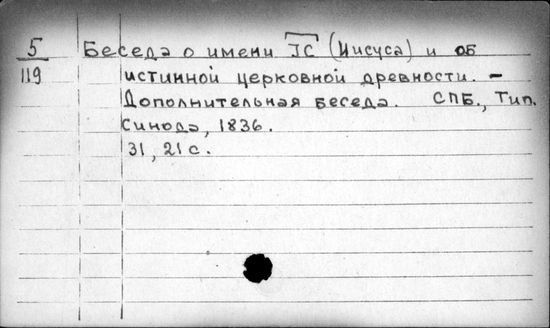 5 Беседа о имени ІС (Иисуса) и об
119 истинной церковной древности. –
Дополнительная беседа. СПБ., Тип.
Синода, 1836.
31, 21 с.